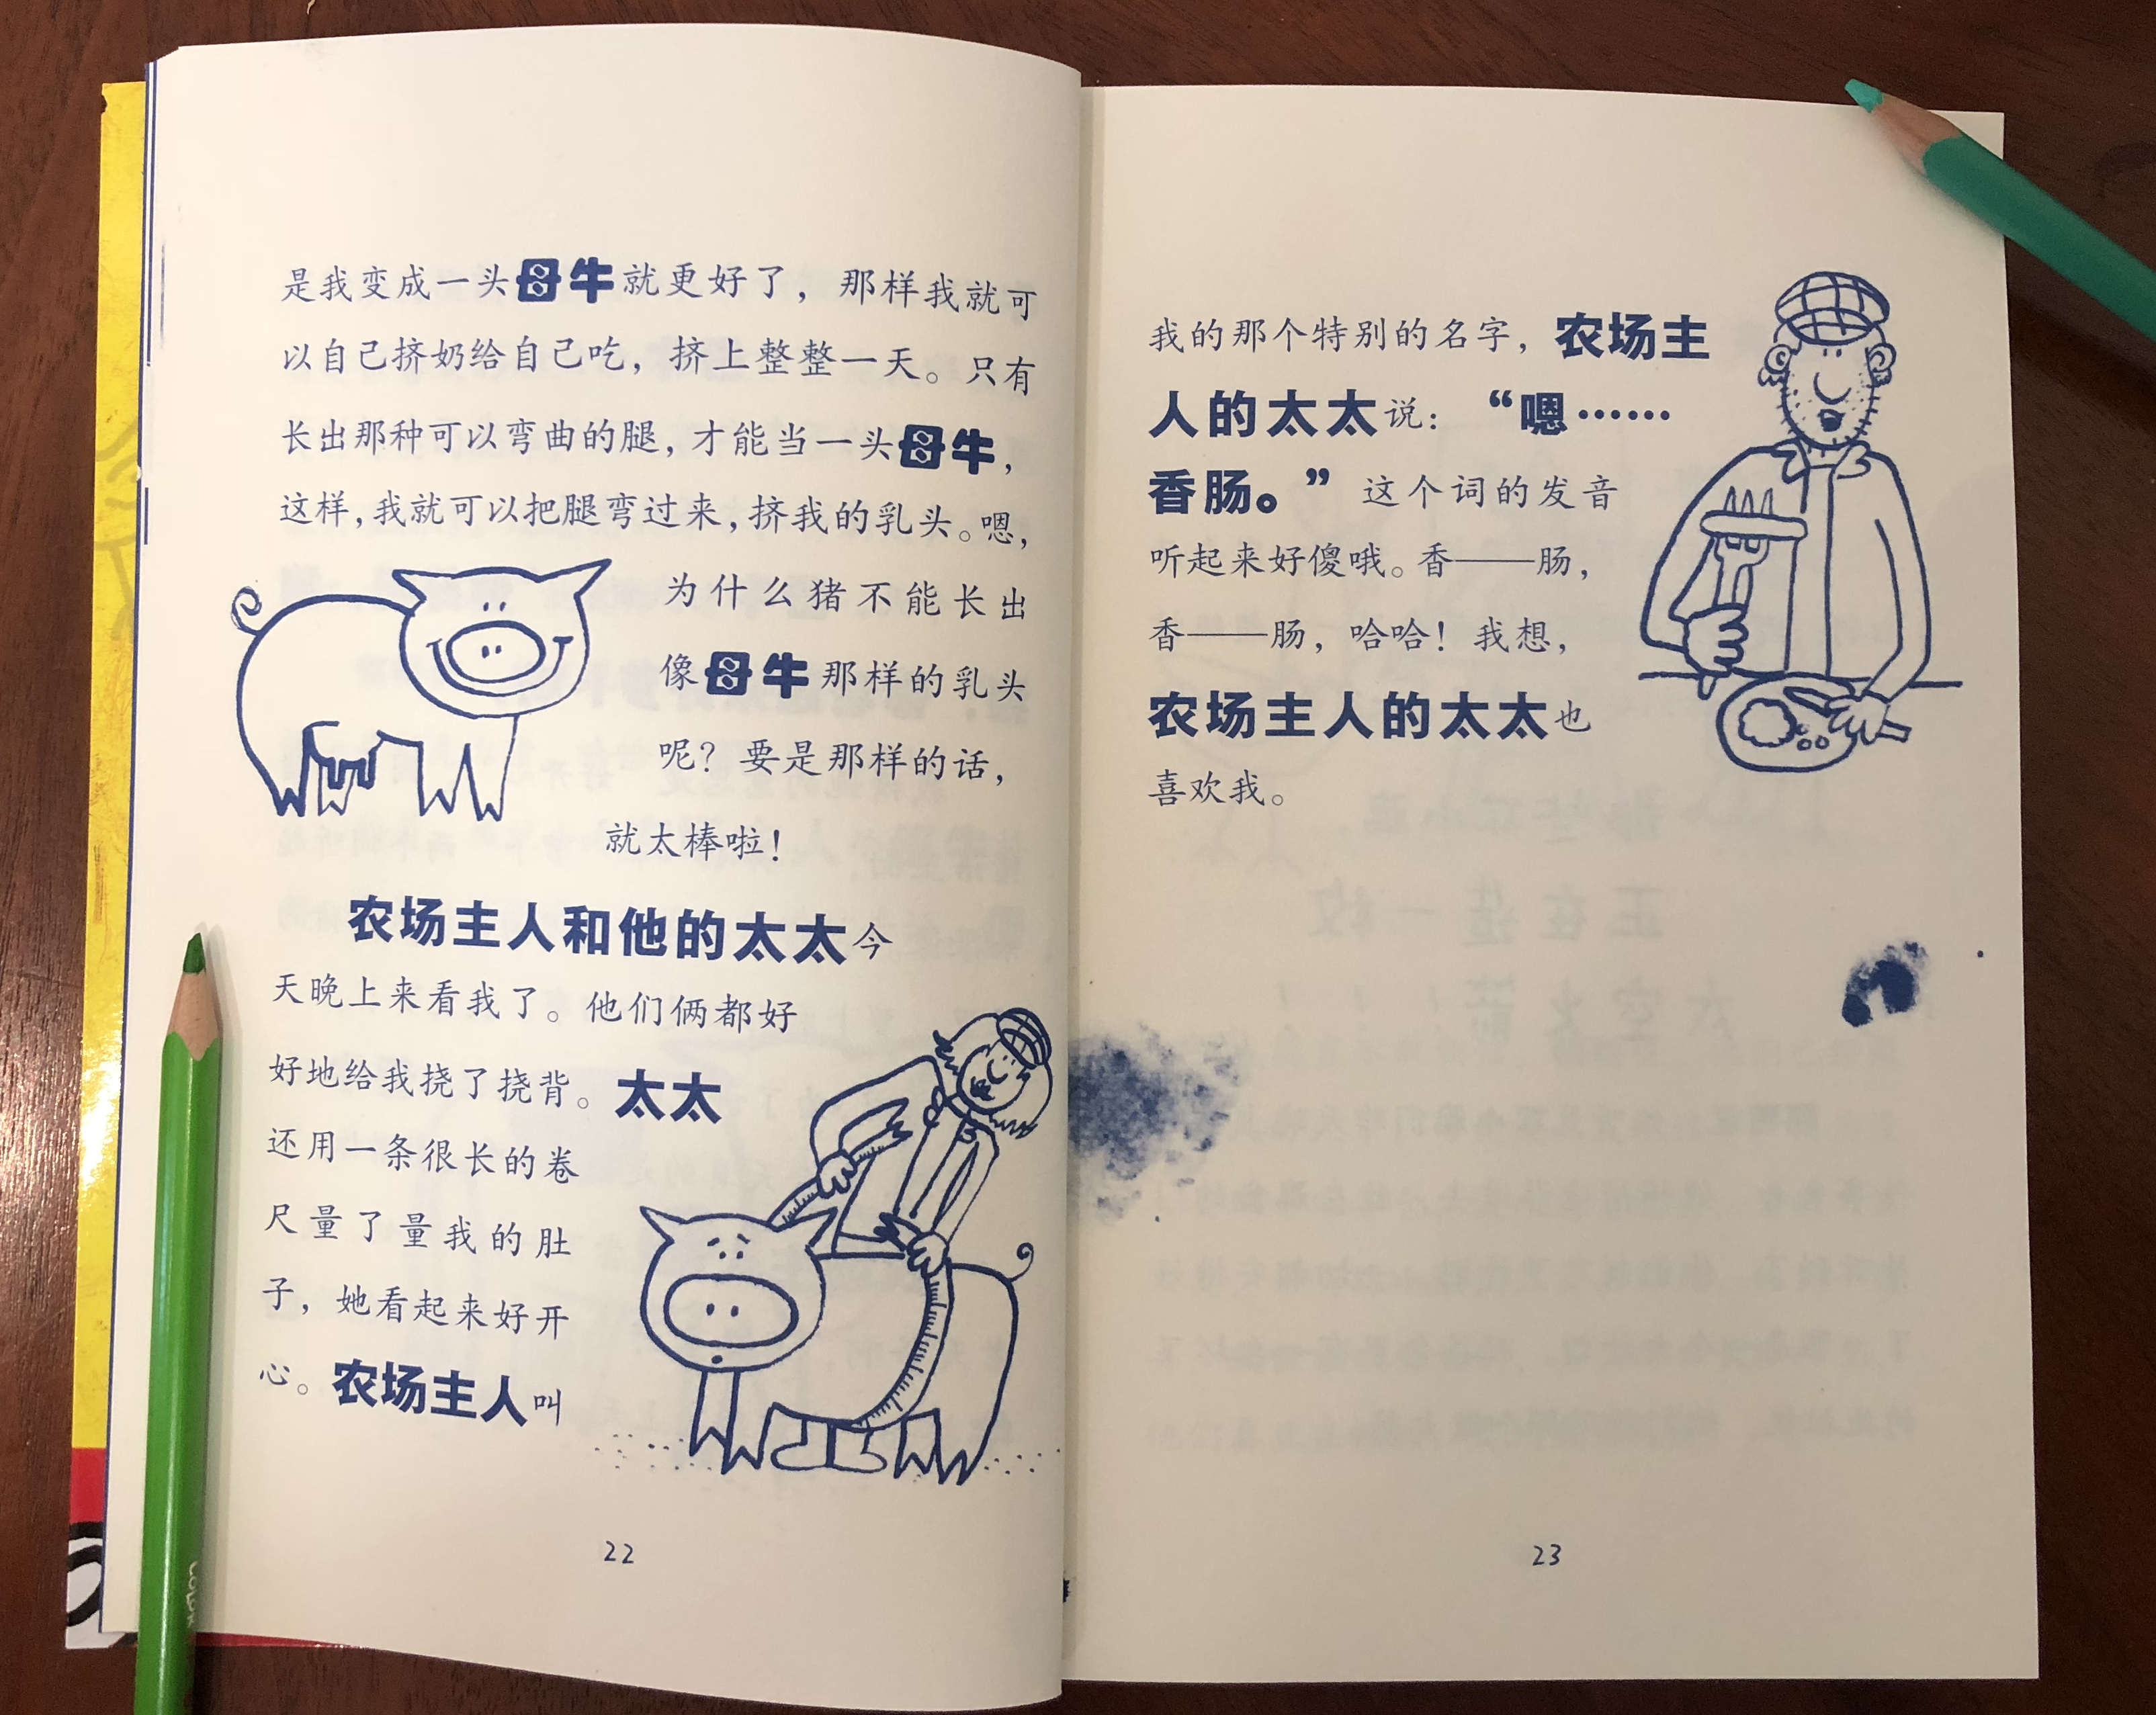 是我变成一头母牛就更好了，那样我就可
以自己挤奶给自己吃，挤上整整一天。只有
长出那种可以弯曲的腿，才能当一头母牛，
这样，我就可以把腿弯过来，挤我的乳头。嗯，
为什么猪不能长出
像母牛那样的乳头
呢？要是那样的话，
就太棒啦！
农场主人和他的太太今
天晚上来看我了。他们俩都好
好地给我挠了挠背。太太
还用一条很长的卷
尺量了量我的肚
子，她看起来好开
心。农场主人叫
22
我的那个特别的名字，农场主
人的太太说：“嗯……
香肠。”这个词的发音
听起来好傻哦。香——肠，
香——肠，哈哈！我想，
农场主人的太太也
喜欢我。
23